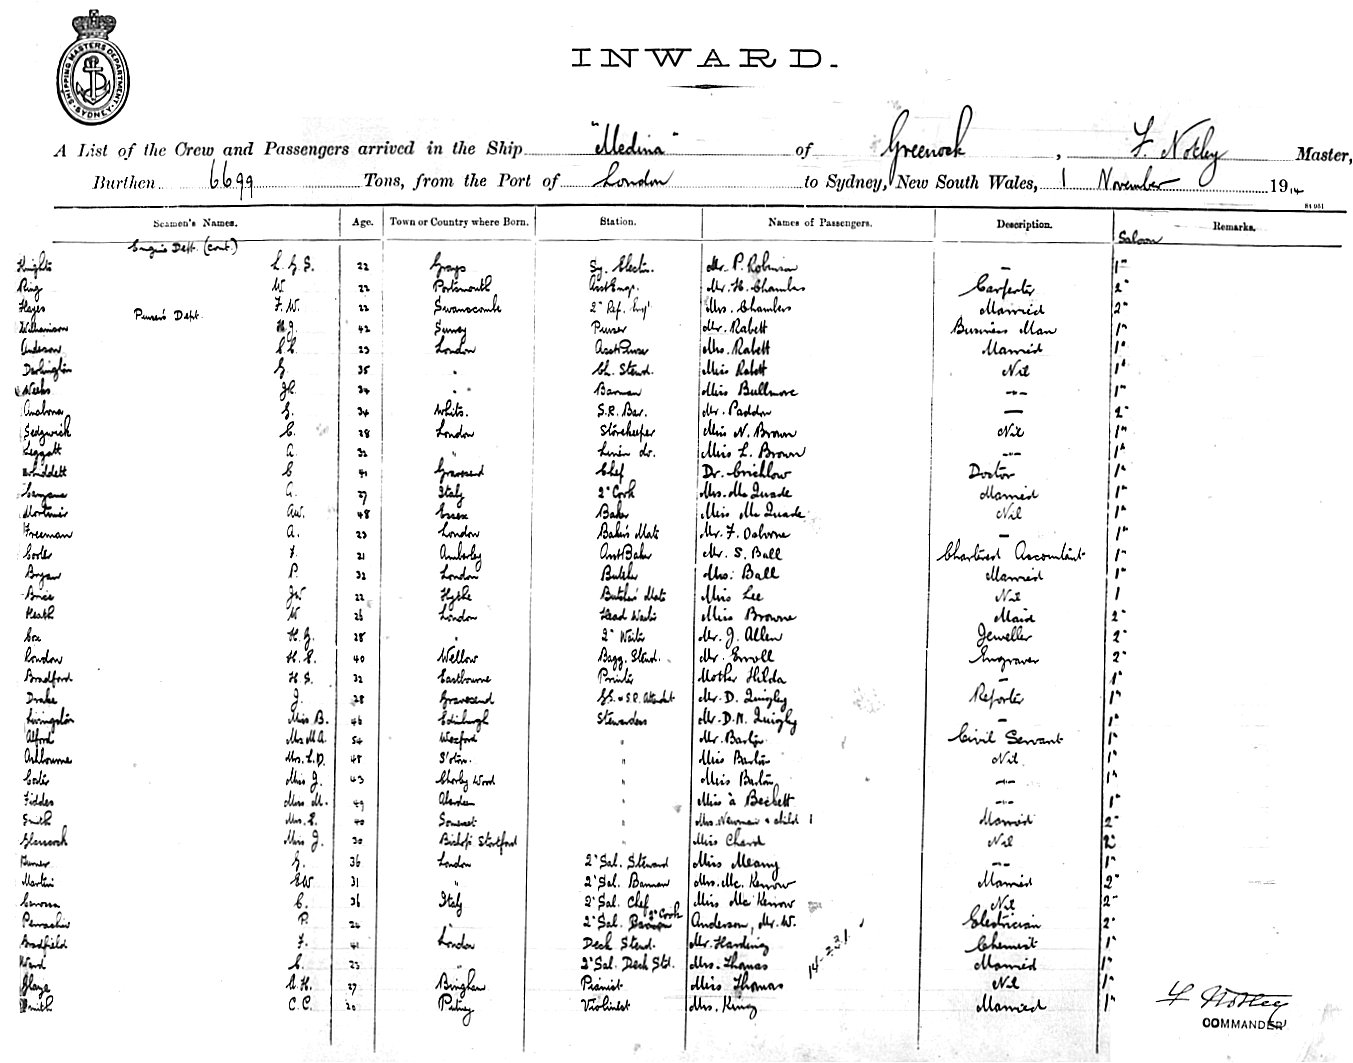 SHIPPING MASTERS DEPARTMENT SYDNEY
INWARD.
A List of the Crew and Passengers arrived in the Ship "Medina" of Greenock, F. Notley Master,
Burthen 6699 Tons, from the Port of London to Sydney, New South Wales, 1 November 1914
Seamen's Names. Age. Town or Country where Born. Station. Names of Passengers. Description. Remarks.
Saloon
Engine Dept. (cont.)
Knights L. G. S. 22 Grays Sy. Electn. Mr. P. Robinson — 1"
Ring W 22 Portsmouth Asst Engr. Mr. H. Chambers Carpenter 2"
Hayes F. W. 22 Swanscombe 2" Ref. Mrs. Chambers Married 2"
Purser's Dept.
Williamson H. J. 42 Surrey Purser Mr. Rabett Business Man 1"
Anderson 23 London Asst Purser Mrs. Rabett Married 1"
Darlington G 35 " " Ch. Stewd. Miss Rabett Nil 1"
Weeks 34 " " Barman Miss Bullmore -"- 1"
G. 34 Whits. S.R. Bar. Mr. Paddon — 2"
Sedgwick C. 28 London Storekeeper Miss N. Brown Nil 1"
Leggatt A. 32 " Linen do. Miss L. Brown -"- 1"
Whiddett C 41 Gravesend Chef Dr. Crichlow Doctor 1"
G. 27 Italy 2" Cook Mrs. Mc Quade Married 1"
Mortimer A.W. 48 Essex Baker Miss Mc Quade Nil 1"
Freeman A. 23 London Baker's Mate Mr. F. Osborne — 1"
F. 21 Amberley Asst Baker Mr. S. Ball Chartered Accountant 1"
Bryan P. 32 London Butcher Mrs. Ball Married 1"
Brice JW 22 Hythe Butcher's Mate Miss Lee Nil 1
Heath W 26 London Head Waiter Miss Browne Maid 2"
Cox H. G. 28 " 2" Waiter Mr. J. Allen Jeweller 2"
London H. E. 40 Wellow Bagg. Stewd. Mr. Erroll Engraver 2"
Bradford H. S. 32 Eastbourne Printer Mother Hilda — 1"
Drake J. 28 Gravesend S.R. Attendt Mr. D. Quigley Reporter 1"
Livingston Miss B. 46 Edinburgh Stewardess Mr. D. N. Quigly — 1"
Alford Mrs M A. 54 Wexford " Mr. Barton Civil Servant 1"
Ashbourne Mrs. L. D. 48 S'ton. " Miss Barton Nil 1"
Miss J. 43 Chorley Wood " Miss Barton -"- 1"
Fiddes Miss M. 49 Aberdeen " Miss à Beckett -"- 1"
Smith Mrs. E. 40 Somerset " Mrs. Newman & child 1 Married 2"
Glasscock Miss J. 30 Bishop's Stortford Miss Chard Nil 2"
Turner G. 36 London 2" Sal. Steward Miss Meany -"- 1"
Martin E.W. 31 " 2" Sal. Barman Mrs. Mc. Kerrow Married 2"
C. 36 Italy 2" Sal. Chef Miss Mc Kerrow Nil 2"
P. 24 " 2" Sal. 2" Cook Anderson, Mr. W. Electrician 2"
Bradfield F. 41 London Deck Stewd. Mr. Harding Chemist 1"
Ward C. 23 " 2" Sal. Deck Std. Mrs. Thomas Married 1"
Glaze A. H. 27 Bingham Pianist Miss Thomas Nil 1"
Smith C. C. 20 Putney Violinist Mrs. King Married 1"
14-231
F Notley
COMMANDER